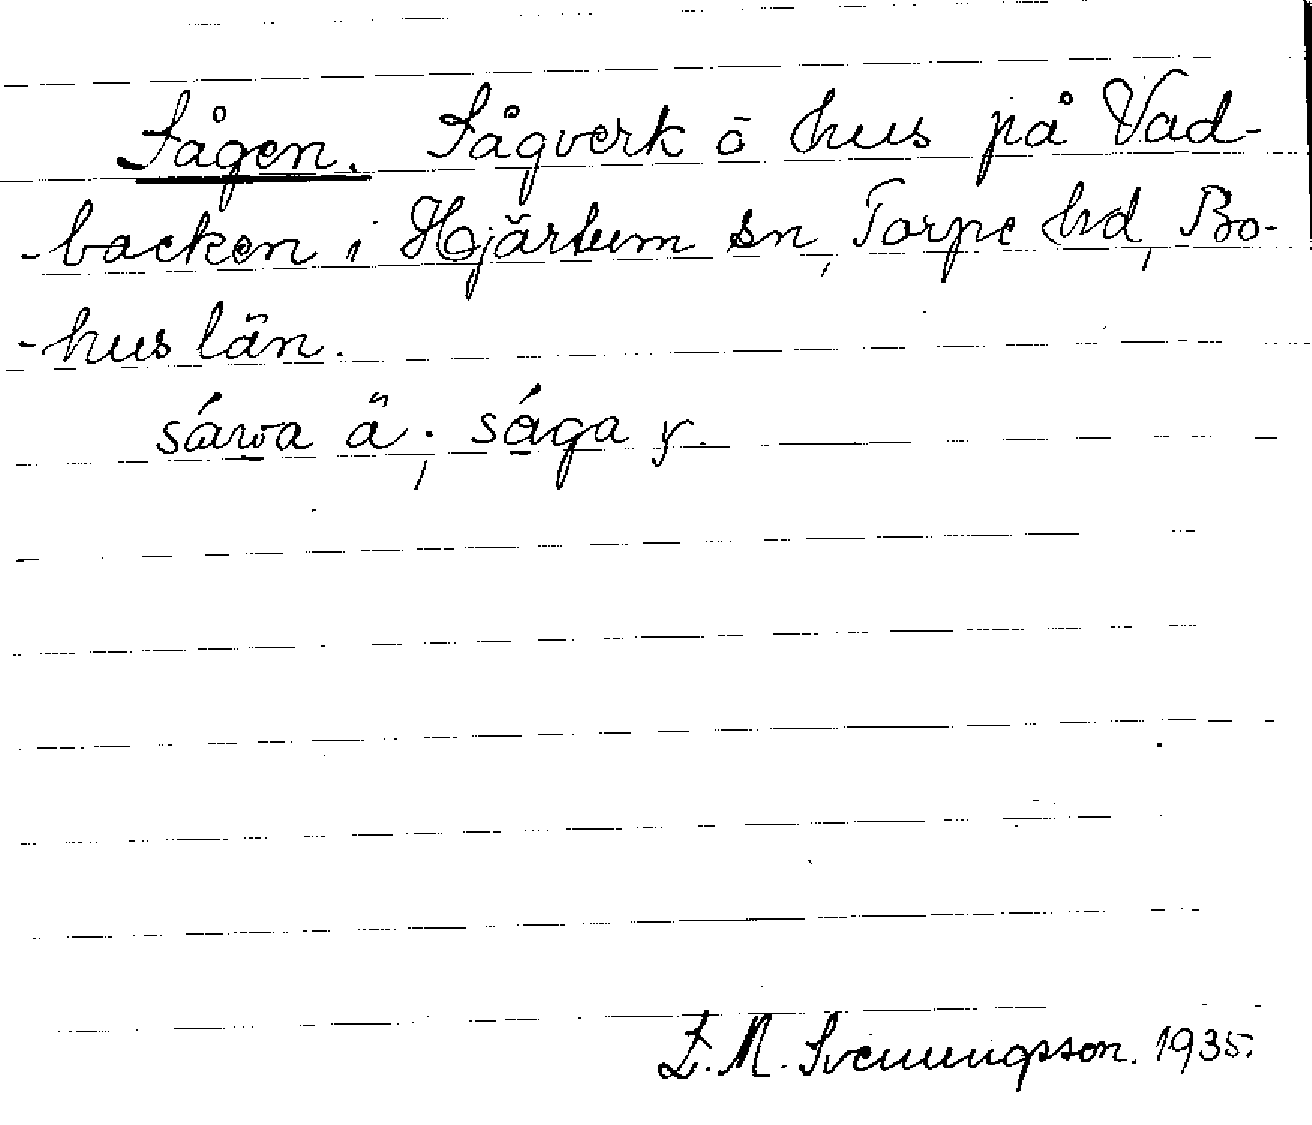 Sågen. Sågverk o hus på Vad-
-backen i Hjärtum sn, Torpe hd, Bo-
-hus län.
sáwa ä; sága y.
E. M. Svenungsson. 1935.